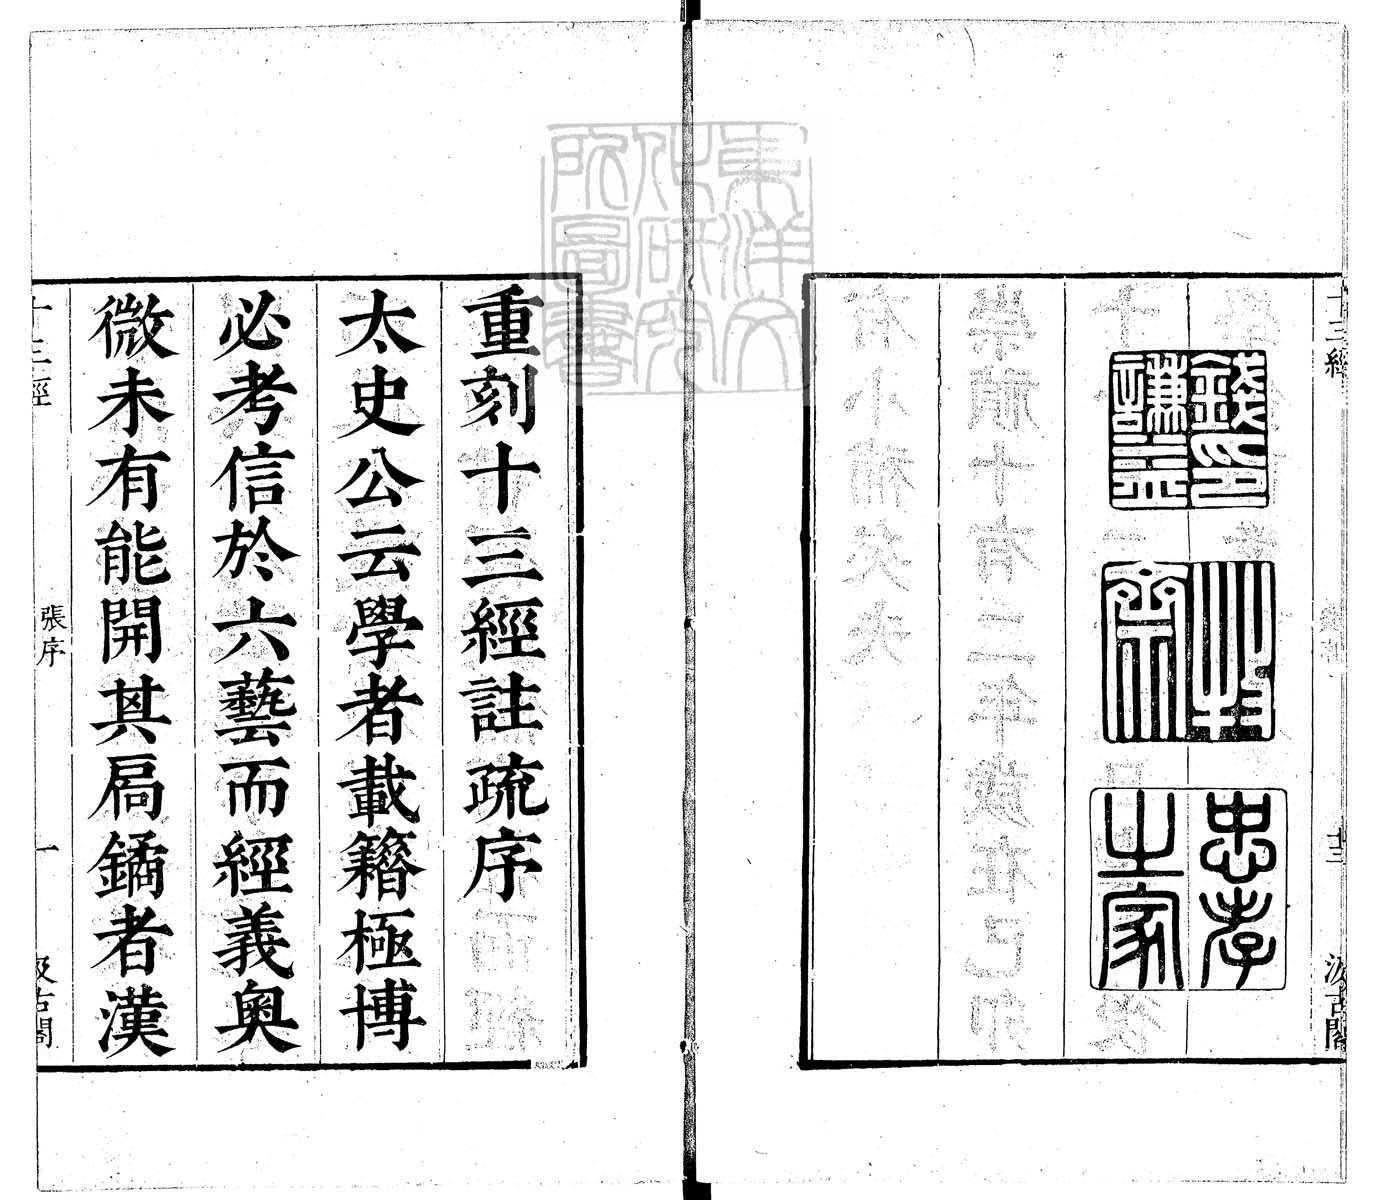 十三經
十三
汲古閣
錢印
謙益
牧
齋
忠孝
之家
東洋文
化研究
所圖書
重刻十三經註疏序
太史公云學者載籍極博
必考信於六藝而經義奧
微未有能開其扃鐍者漢
十三經
張序
一
汲古閣